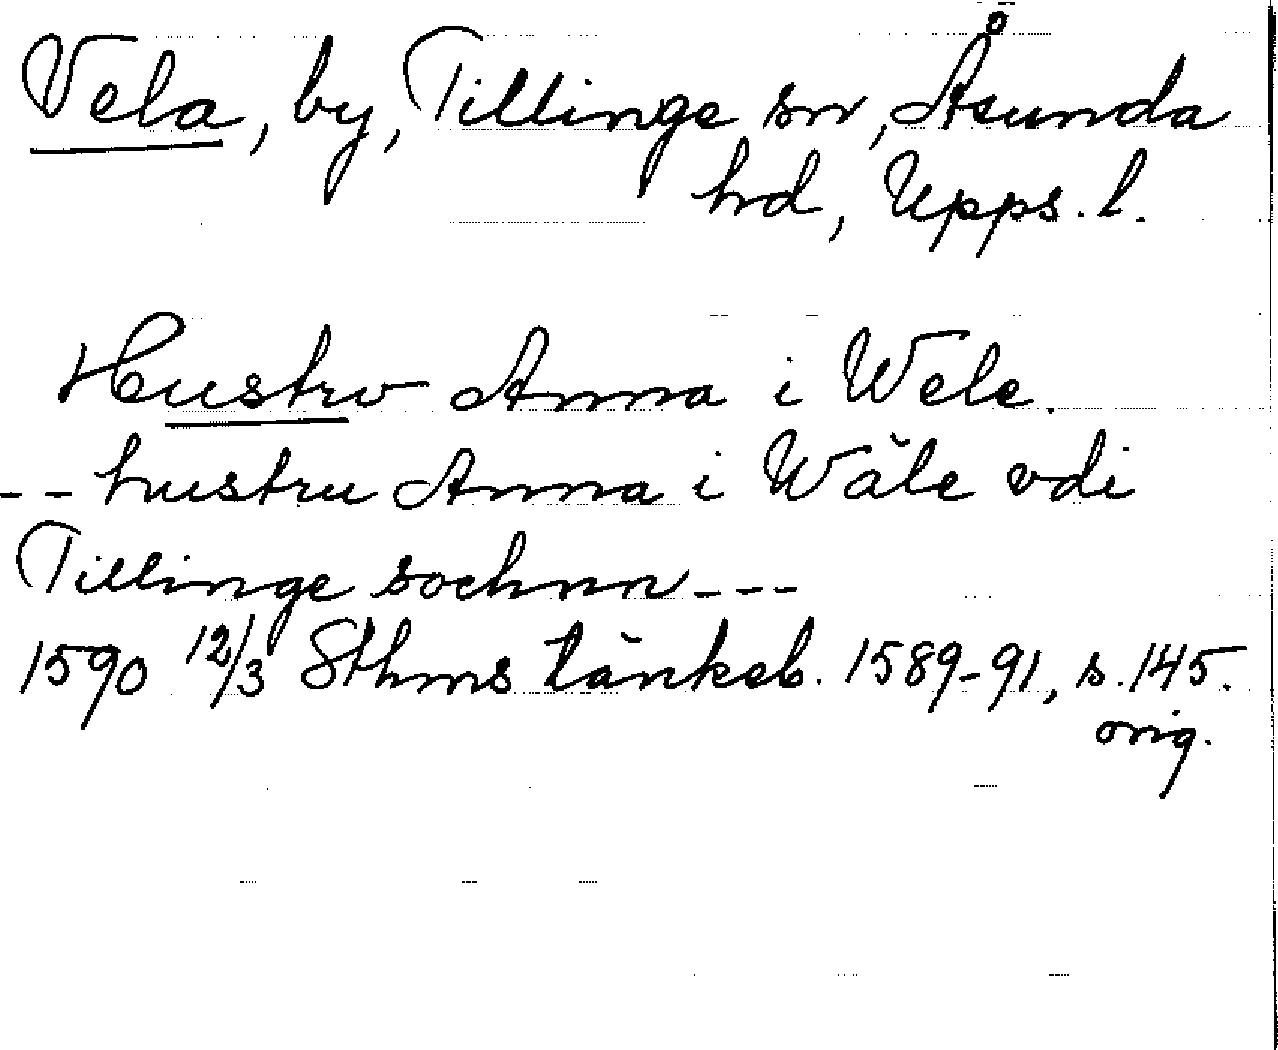 Vela, by, Tillinge sn, Åsunda
hd, Upps. l.
Hustrv Anna i Wele.
-- hustru Anna i Wäle vdi
Tillinge sochnn ---
1590 12/3 Sthms tänkeb. 1589-91, s. 145.
orig.